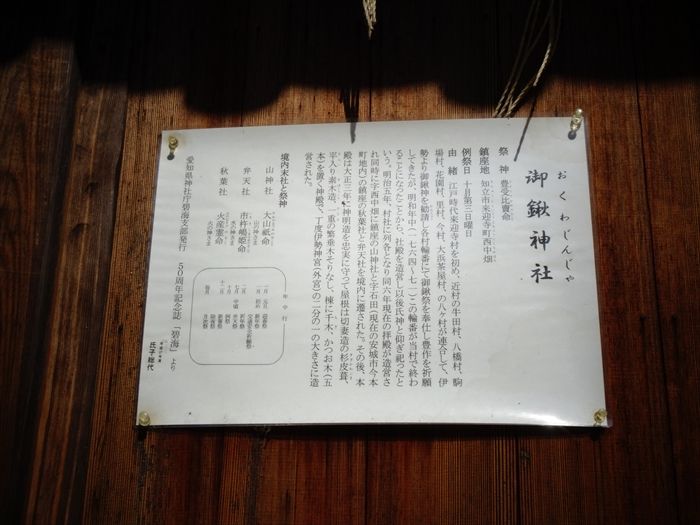 おくわじんじゃ
御鍬神社
祭神 豊受比賣命
鎮座地 知立市来迎寺町西中畑
例祭日 十月第三日曜日
由緒 江戸時代来迎寺村を初め、近村の牛田村、八橋村、駒
場村、花園村、里村、今村、大浜茶屋村、の八ヶ村が連合して、伊
勢より御鍬神を勧請し各村輪番にて御鍬祭を奉仕し豊作を祈願
してきたが、明和年中(一七六四〜七一)この輪番が当村で終わ
ることになったことから、社殿を造営し以後氏神と仰ぎ祀ったと
いう。明治五年、村社に列各となり同六年現在の拝殿が造営さ
れ同時に字西中畑に鎮座の山神社と字石田(現在の安城市今本
町地内)の鎮座の秋葉社と弁天社を境内に遷された。その後、本
殿は大正三年に神明造を忠実に守って屋根は切妻造の杉皮葺、
平入り素木造、一重の繁垂木そりなし、棟に千木、かつお木(五
本)を置く神殿で、丁度伊勢神宮(外宮)の二分の一の大きさに造
営された。
境内末社と祭神
山神社 大山祇命
(山の神さま)
弁天社 市杵嶋姫命
秋葉社 火産霊命
火の神さま
年中行
愛知県神社庁碧海支部発行 50周年記念誌「碧海」より
氏子総代